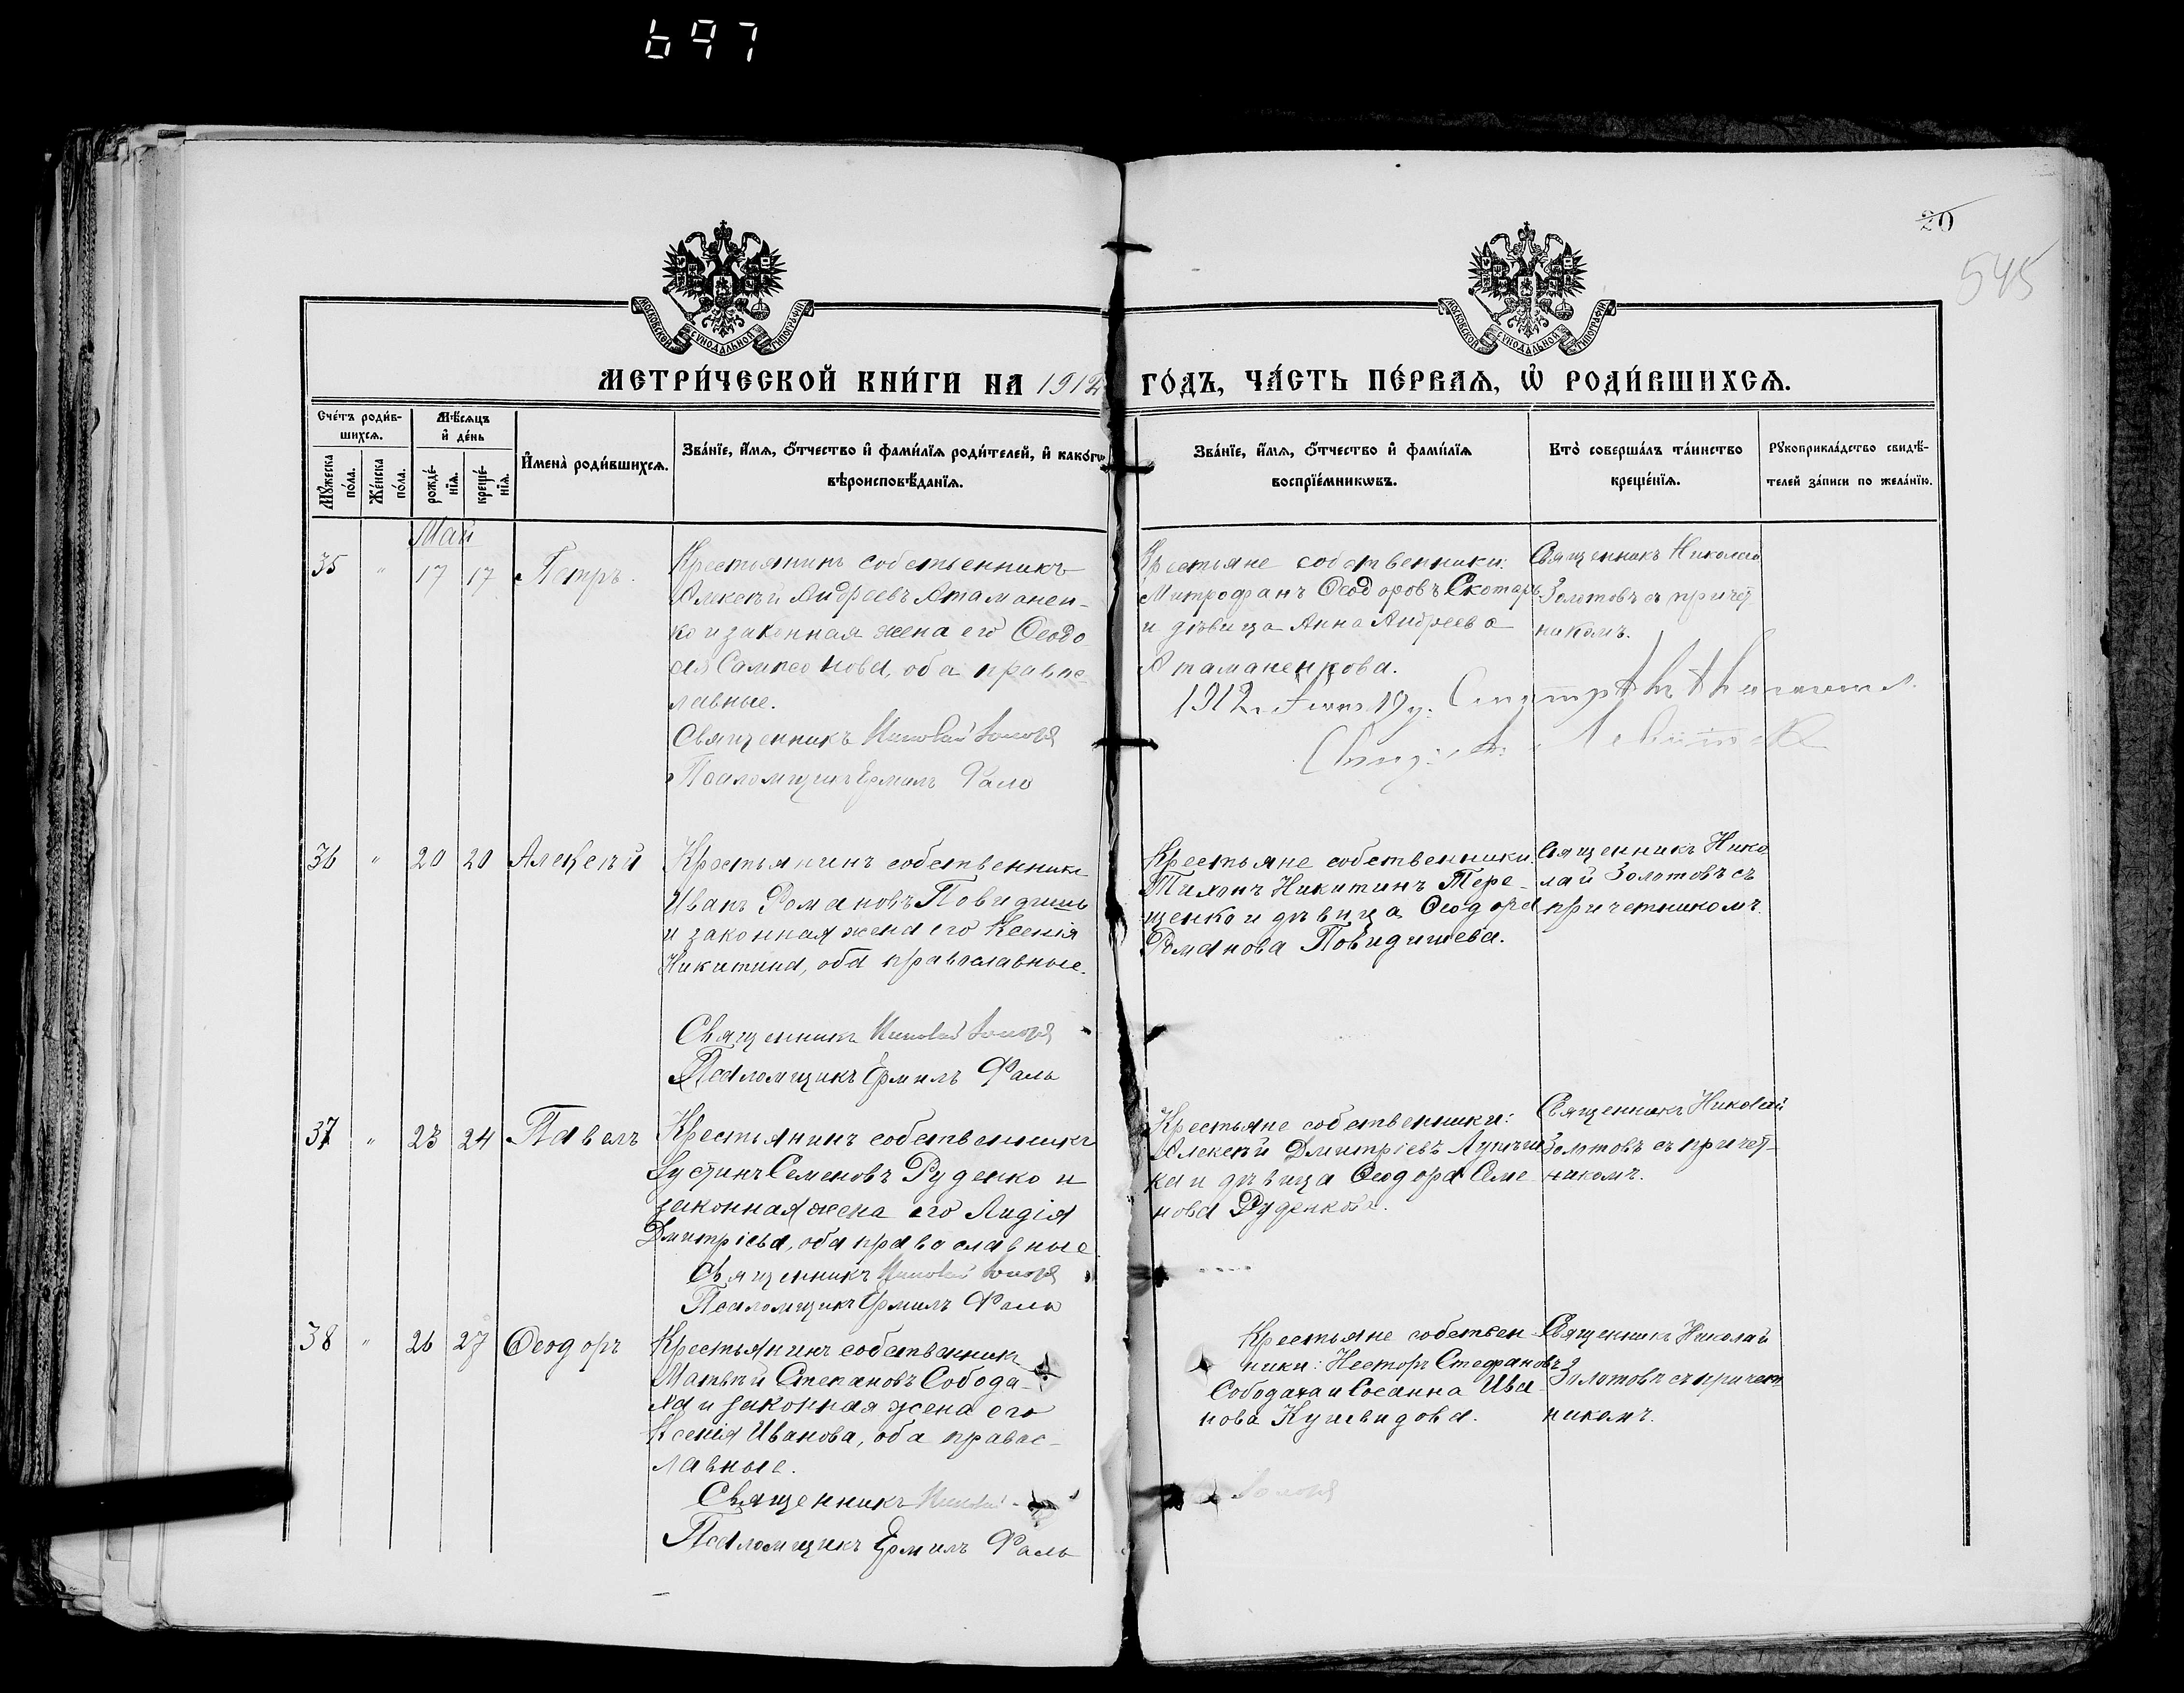 697
20
545
МОСКОВСКОЙ СУНОДАЛЬНОЙ ТИПОГРАФІИ
МОСКОВСКОЙ СУНОДАЛЬНОЙ ТИПОГРАФІИ
МЕТРИ́ЧЕСКОЙ КНИ́ГИ НА 1912 ГО́ДЪ, ЧА́СТЬ ПЕ́РВАЯ, Ѡ҃ РОДИ́ВШИХСЯ.
Сче́тъ роди́в-
шихся.
Му́жеска по́ла.
Же́нска по́ла.
Мѣ́сяцъ
и҆ де́нь
рожде́-
нїя.
креще́-
нїя.
И҆мена̀ роди́вшихся.
Зва́нїе, и҆́мя, о҆́тчество и҆ фами́лїя роди́телей, и҆ како́гѡ
вѣроисповѣ́данїя.
Зва́нїе, и҆́мя, о҆́тчество и҆ фами́лїя
воспрїе́мникѡвъ.
Кто̀ соверша́лъ та́инство
креще́нїя.
Рꙋкоприкла́дство свидѣ́-
телей за́писи по жела́нїю.
Май
35 " 17 17 Петръ.
Крестьянинъ собственникъ
Алексѣй Андреевъ Атаманен-
ко и законная жена его Ѳеодо
сія Сампсонова, оба правос-
лавные.
Священникъ Николай Золотовъ
Псаломщикъ Ермилъ Фаль
Крестьяне собственники:
Митрофанъ Ѳеодоровъ Скотарь
и дѣвица Анна Андреева
Атаманенкова.
1912
Священникъ Николай
Золотовъ съ причет-
никомъ.
36 " 20 20 Алексѣй
Крестьянинъ собственникъ
Иванъ Романовъ Повидишь
и законная жена его Ксенія
Никитина, оба православные.
Священникъ Николай Золотовъ
Псаломщикъ Ермилъ Фаль
Крестьяне собственники
Тихонъ Никитинъ Тере-
щенко и дѣвица Ѳеодора
Романова Повидишева.
Священникъ Нико
лай Золотовъ съ
причетникомъ.
37 " 23 24 Павелъ
Крестьянинъ собственникъ
Іустинъ Семеновъ Руденко и
законная жена его Лидія
Дмитріева, оба православные
Священникъ Николай Золотовъ
Псаломщикъ Ермилъ Фаль
Крестьяне собственники:
Алексѣй Дмитріевъ
ка и дѣвица Ѳеодора Семе
нова Руденкова.
Священникъ Николай
Золотовъ съ причет-
никомъ.
38 " 26 27 Ѳеодоръ
Крестьянинъ собственникъ
Матвѣй Стефановъ Собода-
ха и законная жена его
Ксенія Иванова, оба правос-
лавные.
Священникъ Николай
Псаломщикъ Ермилъ Фаль
Крестьяне собствен
ники: Несторъ Стефановъ
Сободаха и Сосанна Ива-
нова
Священникъ Николай
Золотовъ съ причет
никомъ.
Золотовъ